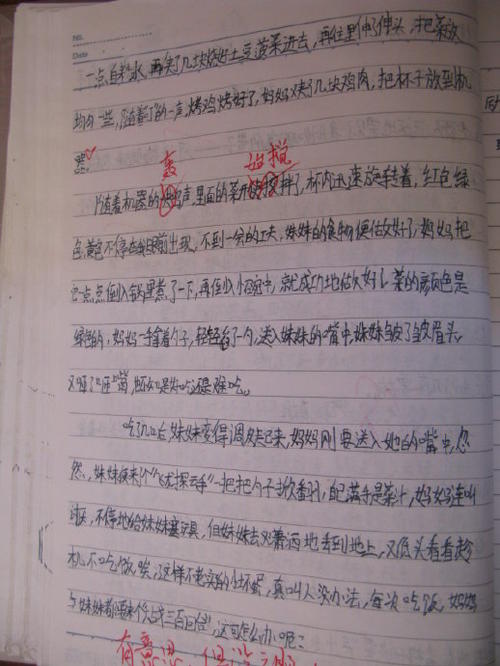 No.
Date
一点自来水,再夹了几块烧好土豆菠菜进去,再往里伸了伸头,把菜放
均匀一些,随着丁的一声,烤鸡烤好了,妈妈又夹了几块鸡肉,把杯子放到机
器。
轰 搅拌
随着机器的声,里面的菜开始搅拌了,杯内迅速放转着,红色绿
色黄色不停在眼前出现,不到一分的工夫,妹妹的食物便做好了,妈妈把
它一点点倒入锅里煮了一下,再倒入小碗中,就成功地做好了。菜的颜色是
绿色的,妈妈一手拿着勺子,轻轻舀了一勺,送入妹妹的嘴中,妹妹皱了皱眉头,
又咂了咂嘴,好吃还是难吃。
吃了几口后妹妹变得调皮起来,妈妈刚要送入她的嘴中,忽
然,妹妹便来个“飞龙探云手”一把把勺子掀翻,弄满手是菜汁,妈妈连叫
讨厌,不停地给妹妹塞玩具,但妹妹却又潇洒地丢到地上,又低头看看趁
机不吃饭唉,这样不老实的小坏蛋,真叫人没办法,每次吃饭,妈妈
与妹妹都要来个大战三百回合,这可怎么办呢?
有意思,